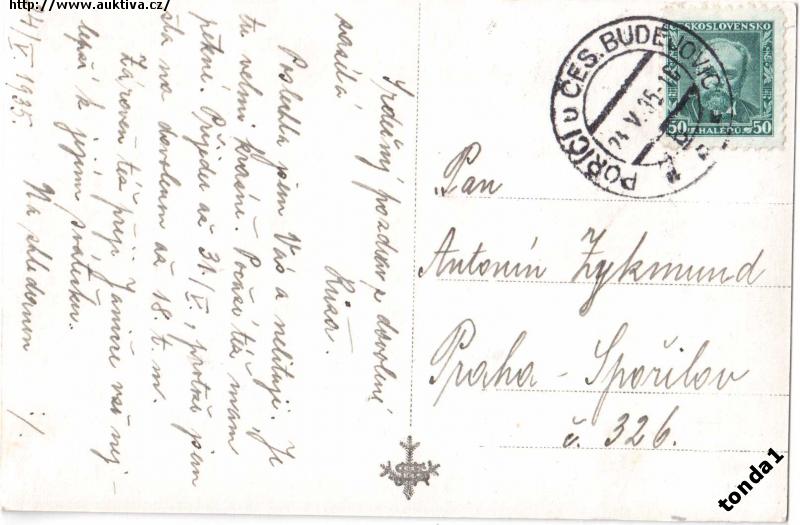 http://www.auktiva.cz/
Srdečný pozdrav z dovolené
zasílá
Růža.
Poslechla jsem Vás a nelituji. Je
tu velmi krásně. Počasí též mám
pěkné. Přijedu až 31./V., protož jsem
šla na dovolenou až 18 t. m.
Zároveň též přeji Janiče vše nej-
lepší k jejímu svátku.
Na shledanou
24/V. 1935.
POŘÍČÍ U ČES. BUDĚJOVIC
24.V.35
ČESKOSLOVENSKO
50 HALÉŘŮ 50
Pan
Antonín Zykmund
Praha - Spořilov
č. 326.
tonda1